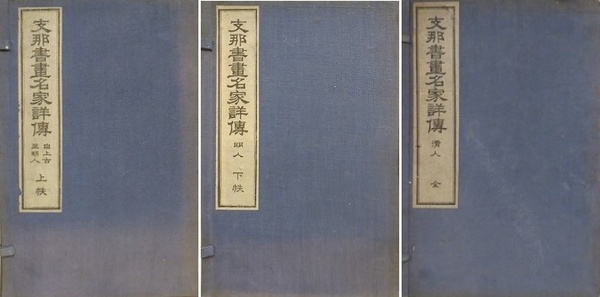 支那書畫名家詳傳
自上古
至明人
上帙
支那書畫名家詳傳
明人
下帙
支那書畫名家詳傳
清人
全